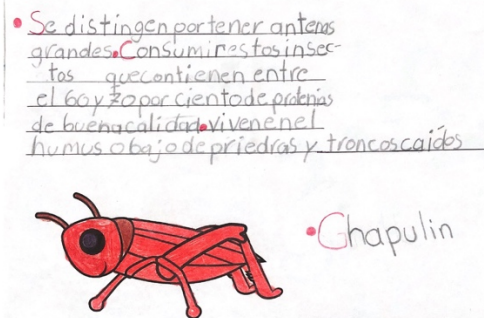 • Se distingen por tener anteras
grandes. Consumir estos insec-
tos que contienen entre
el 60 y 70 por ciento de protenias
de buena calidad. viven en el
humus o bajo de priedras y troncos caídos
• Chapulin